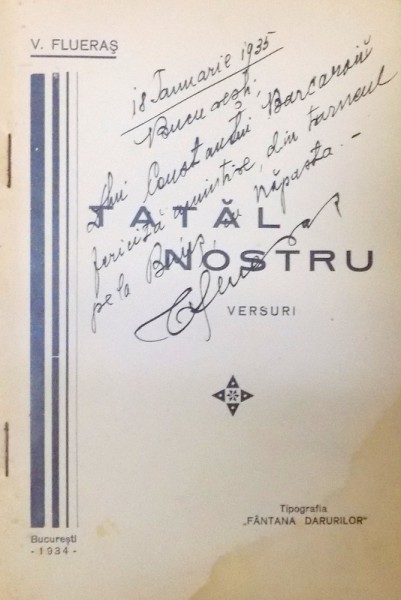 V. FLUERAȘ
18 Ianuarie 1935
București,
D-lui Constantin Barcaroiu
fericită amintire, din turneul
pe la Brița, cu Năpasta. –
TATĂL
NOSTRU
VERSURI
Tipografia
„FÂNTANA DARURILOR"
București
- 1934 -